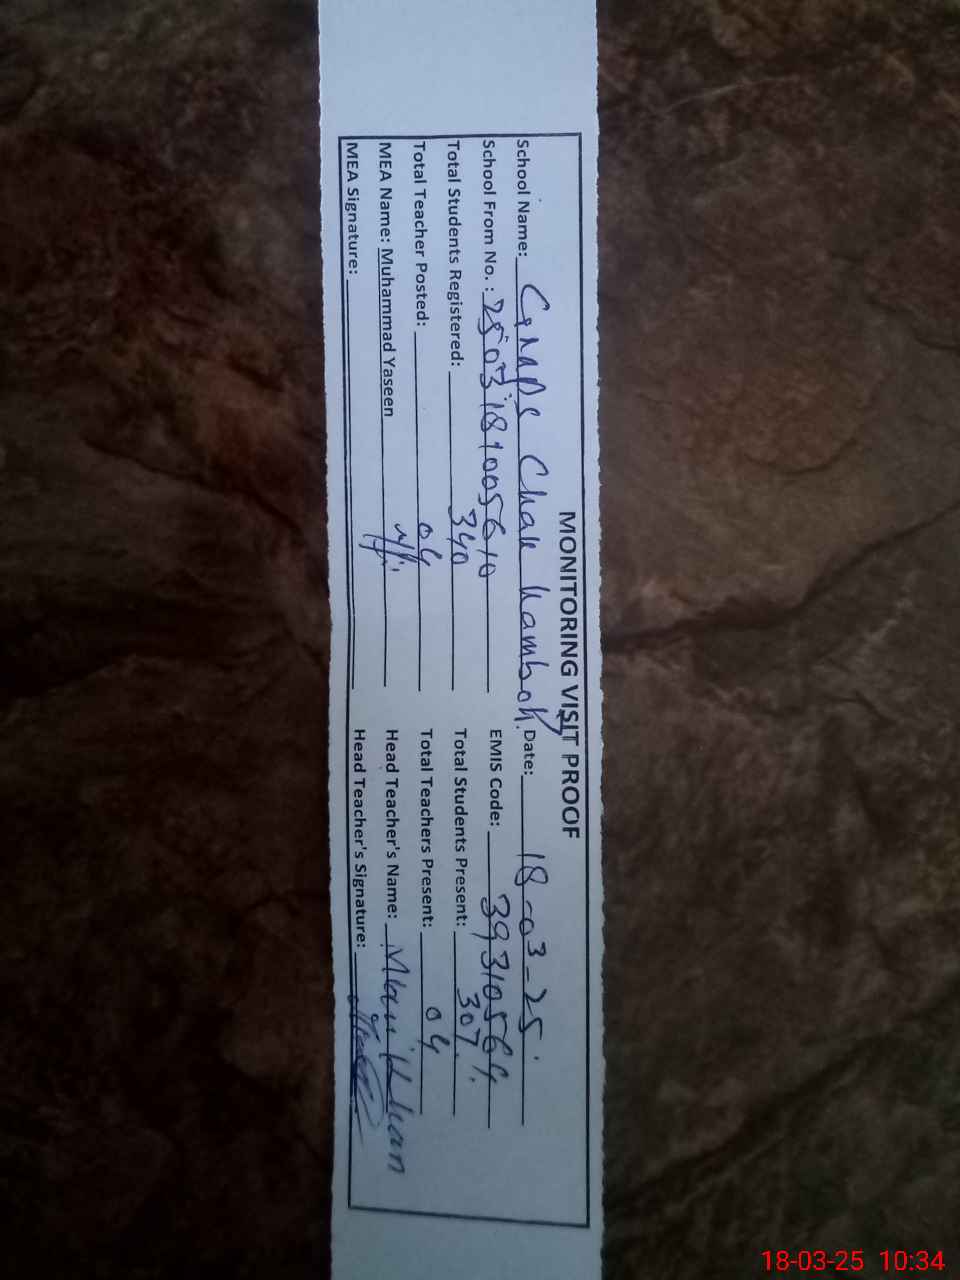 MONITORING VISIT PROOF
School Name: GMMPS Chak Kamboh. Date: 18-03-25
School From No.: 2503181005610 EMIS Code: 39310564
Total Students Registered: 340 Total Students Present: 307.
Total Teacher Posted: 04 Total Teachers Present: 04
MEA Name: Muhammad Yaseen Head Teacher's Name:
MEA Signature: Head Teacher's Signature:
18-03-25 10:34